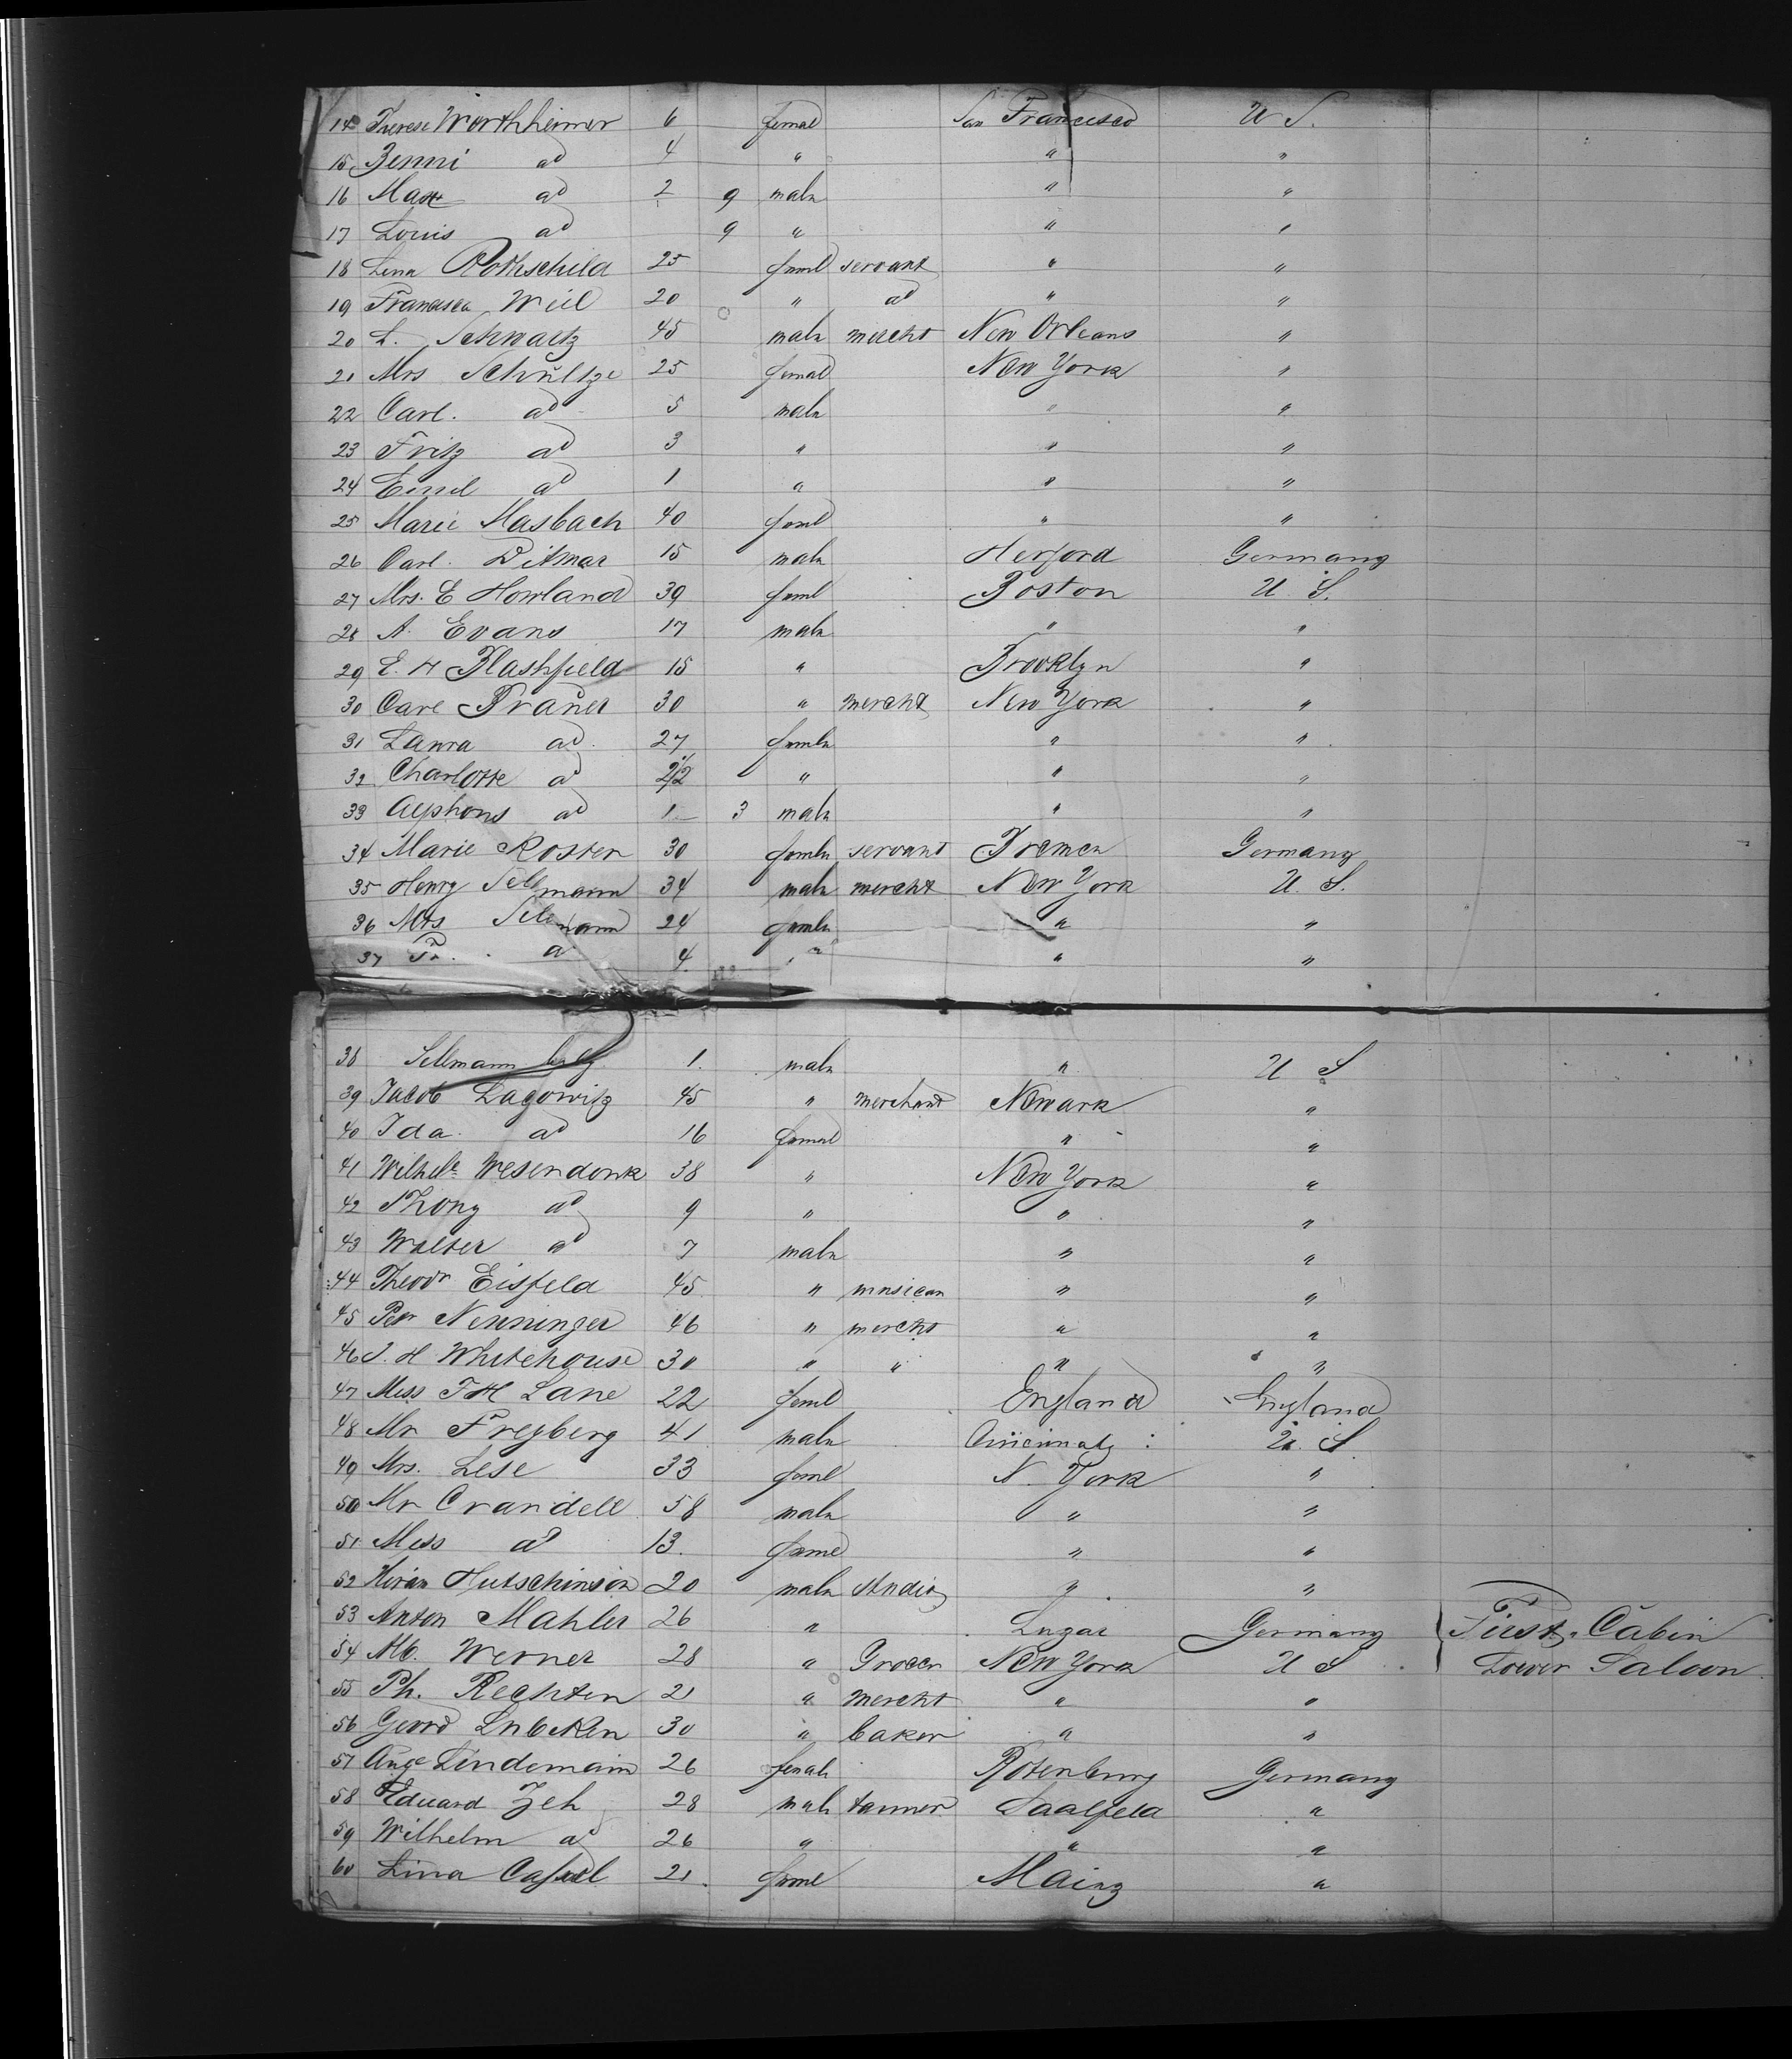 14 Therese Worthheimer 6 femal San Francisco U S.
15 Benni do 4 " " "
16 Max do 2 9 male " "
17 Louis do 9 " " "
18 Lena Rothschild 25 feml servant " "
19 Francisca Weil 20 " do " "
20 L. Schwartz 45 male mercht New Orleans "
21 Mrs Schültze 25 femal New York "
22 Carl. do 5 male " "
23 Fritz do 3 " " "
24 Emil do 1 " " "
25 Marie Masbach 40 feml " "
26 Carl. Ditmar 15 male Herford Germany
27 Mrs. E Howland 39 feml Boston U. S.
28 A. Evans 17 male " "
29 E. H Blashfield 15 " Brooklyn "
30 Carl 30 " mercht New York "
31 Laura do. 27 femle " "
32 Charlotte do 2 1/2 " " "
33 Alphons do 1 3 male " "
34 Marie Koster 30 femle servant Bremen Germany
35 Henry Sellmann 34 male mercht New York U. S.
36 Mrs Sellmann 24 femle " "
37 do 4. " " "
38 Sellmann 1. male " U S
39 Jacob Lagowitz 45 " merchant Newark "
40 Ida. do 16 femal " "
41 Wilhele Wesendonk 38 " New York "
42 do 9 " " "
43 Walter do 7 male " "
44 Theodr Eisfeld 45 " musican " "
45 Petr Nenninger 46 " mercht " "
46 J. H Whitehouse 30 " " " "
47 Miss F H Lane 22 feml England England
48 Mr Freyberg 41 male Cincinnaty : U. S
49 Mrs. Lese 33 feml N. York "
50 Mr Crandell 58 male " "
51 Miss do 13. feml " "
52 Hiram Hutschinson 20 male " "
53 Anton Mahler 26 " Germany First Cabin
54 Werner 28 " Grocer New York U S Lower Saloon
55 Ph. Rechten 21 " mercht " "
56 Geord Lubcken 30 " baker " "
57 Auge Lindemann 26 femal Rotenburg Germany
58 Eduard Zeh 28 male tanner Saalfeld "
59 Wilhelm do 26 " " "
60 Lina Cassel 21. feml Mainz "